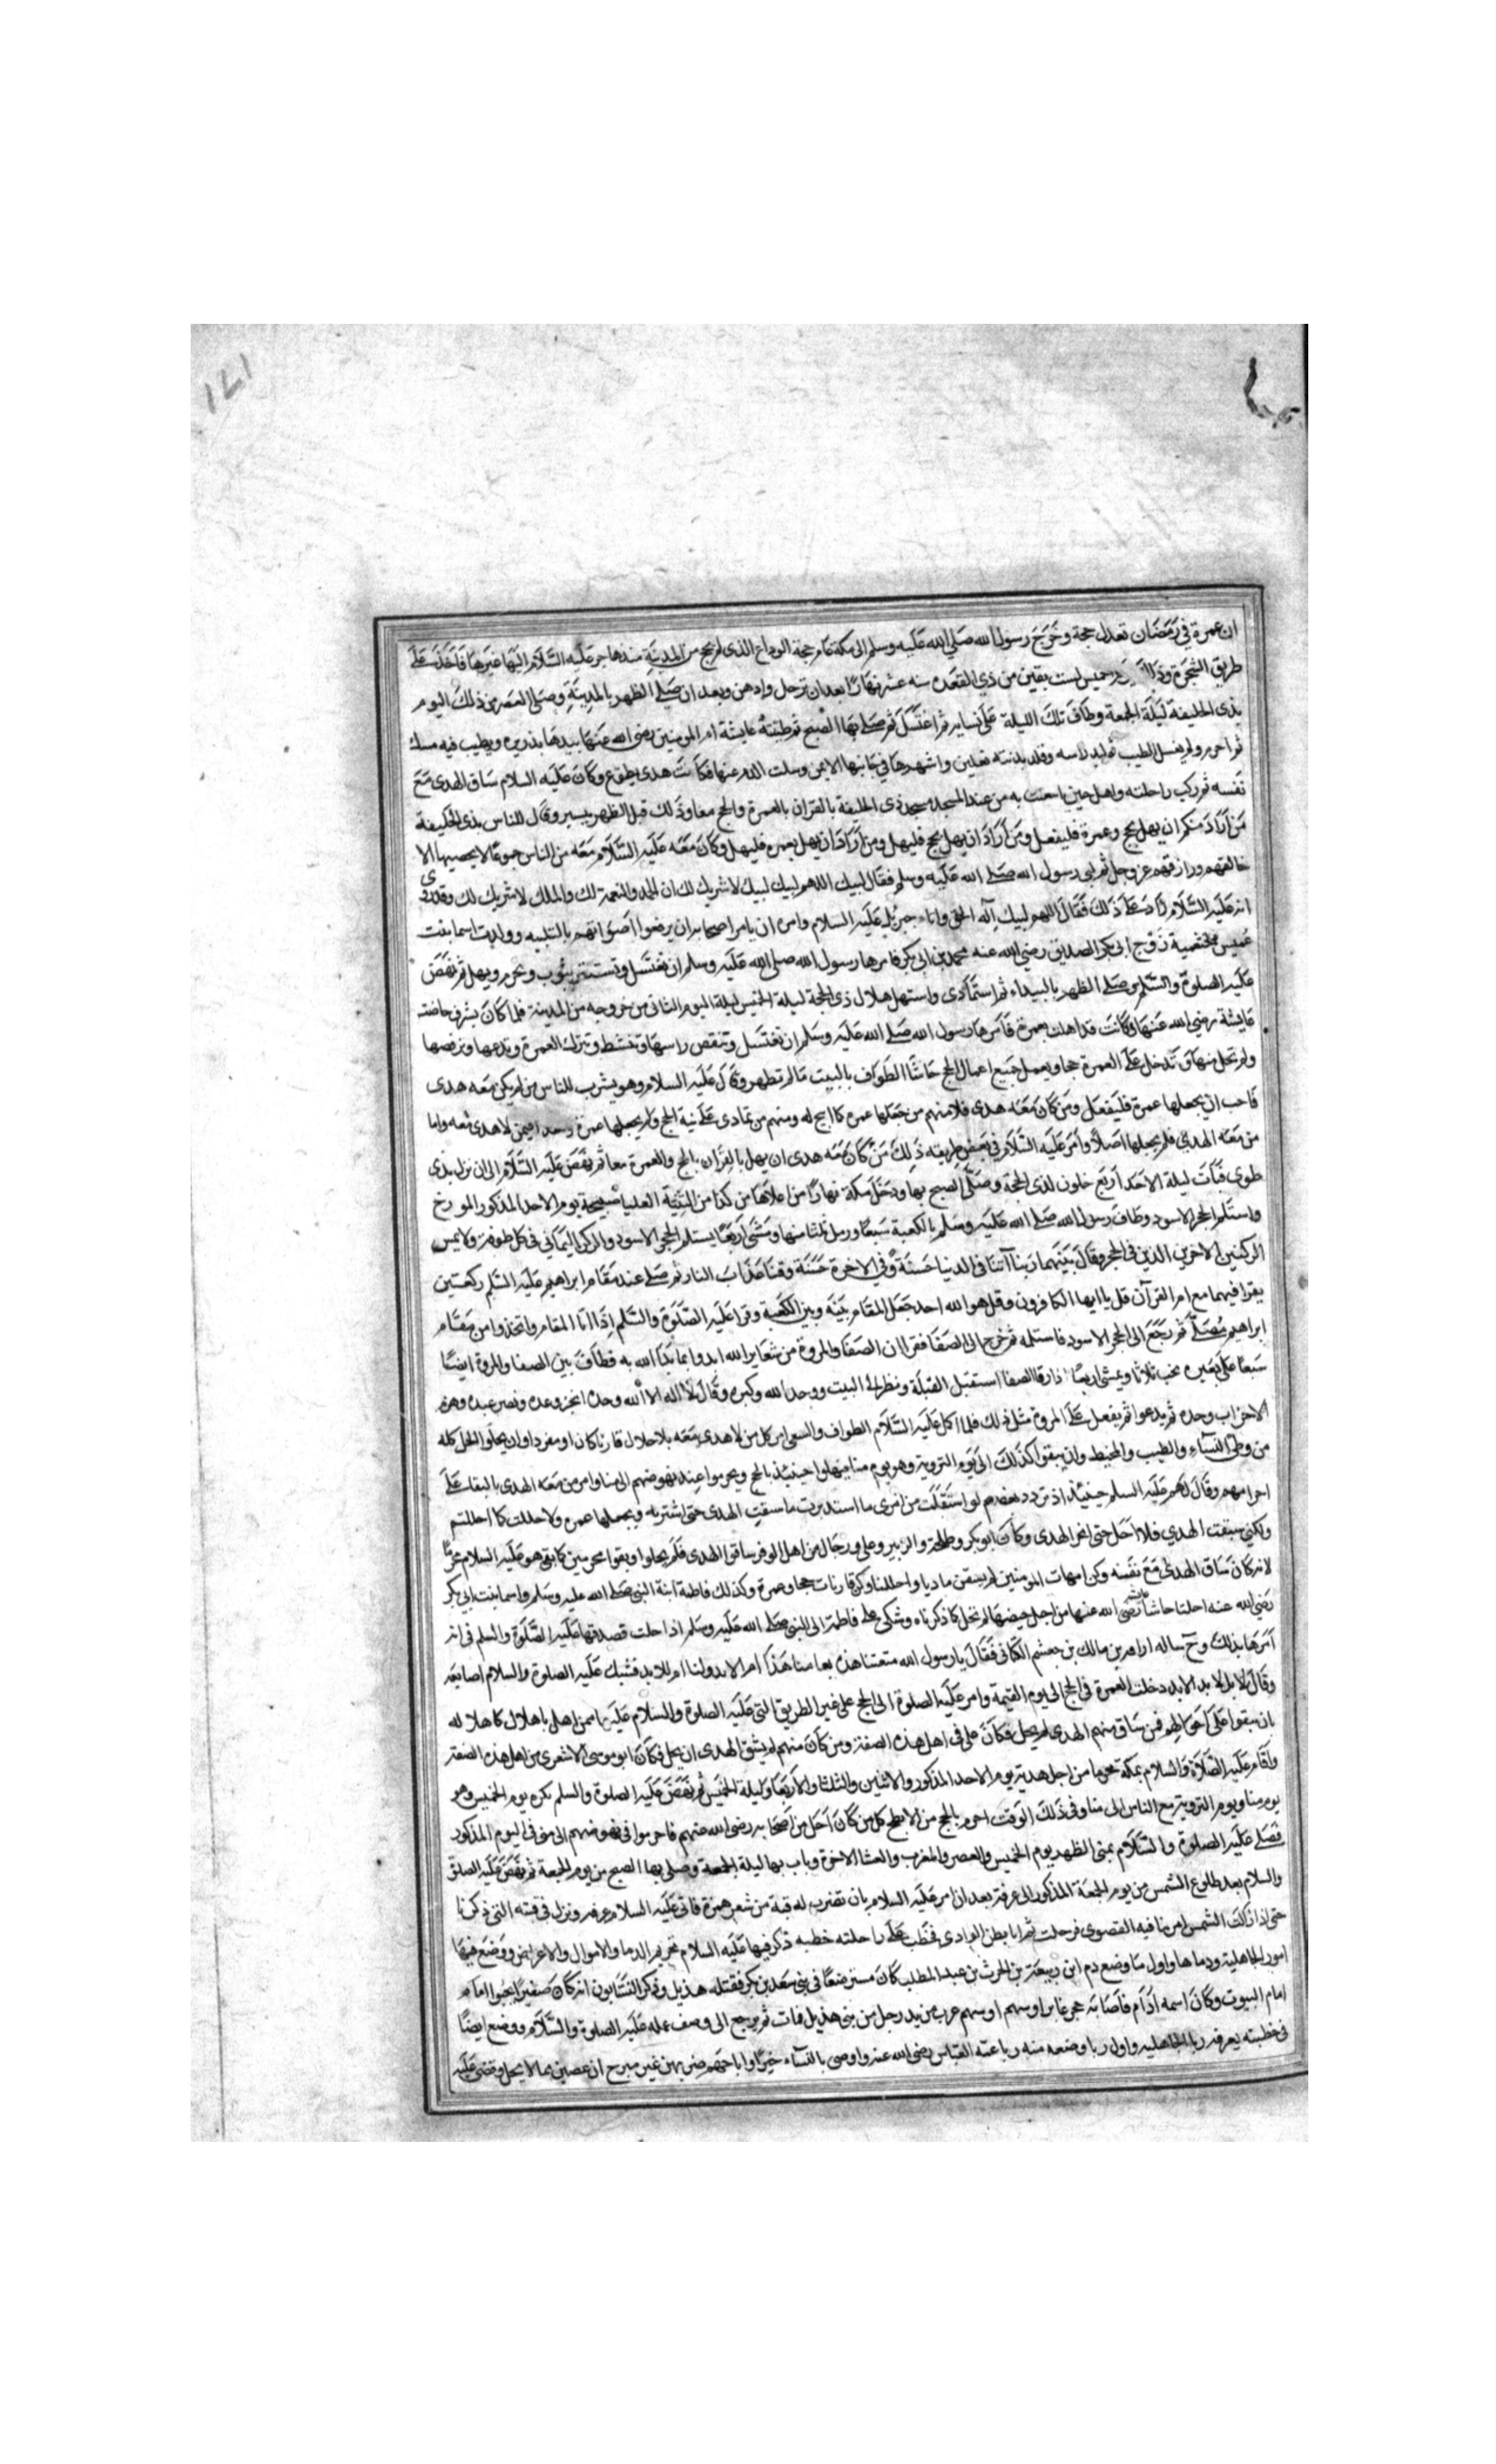 ١٢١
ان عمرة في رمضان تعدل حجة وخرج رسول الله صلي الله عليه وسلم الى مكة عام حجة الوداع الذى لم يحج من المدينة منذ هاجر عليه السلام اليها غيرها فاخذ على
طريق الشجرة وذلك يوم الخميس لست بقين من ذي القعدة سنه عشر نهارا بعد ان ترجل وادهن وبعد ان صلے الظهر بالمدينة وصلى العصر من ذلك اليوم
بذى الحليفة ليلة الجمعة وطاف تلك الليلة على نسايه ثم اغتسل ثم صلے بها الصبح ثم طيبته عايشة ام المومنين رضى الله عنها بيدها بذريره وبطيب فيه مسك
ثم احرم ولم يغسل الطيب ثم لبد راسه وقلد بدنته نعلين واشعرها في جانبها الايمن وسلت الدم عنها فكانت هدى تطوع وكان عليه السلام ساق الهدى مع
نفسه ثم ركب راحلته واهل حين انبعثت به من عند المسجد مسجد ذى الحليفة بالقران بالعمرة والحج معا وذلك قبل الظهر بيسير وقال للناس بذى الحليفة
من اراد منكم ان يهل بحج وعمرة فليفعل ومن اراد ان يهل بحج فليهل ومن اراد ان يهل بعمره فليهل وكان معه عليه السلام معه من الناس جموعا لا يحصيها الا
خالقهم ورازقهم عز وجل ثم لبى رسول الله صلے الله عليه وسلم فقال لبيك اللهم لبيك لبيك لا شريك لك ان الحمد والنعمة لك والملك لا شريك لك وقد روى
انه عليه السلام زاد على ذلك فقال اللهم لبيك اله الحق واتاه جبريل عليه السلام وامره ان يامر اصحابه ان يرفعوا اصواتهم بالتلبيه وولدت اسما بنت
عميس الخثعمية زوج ابى بكر الصديق رضي الله عنه محمد بن ابى بكر فامرها رسول الله صلى الله عليه وسلم ان تغتسل وتستثفر بثوب وتحرم وتهل ثم نهض
عليه الصلوة والسلم وصلے الظهر بالبيداء ثم استمادى واستهل هلال ذى الحجة ليلة الخميس ليلة اليوم الثانى من خروجه من المدينة فلما كان بسرف حاضت
عايشة رضي الله عنها وكانت قد اهلت بعمرة فامرها رسول الله صلے الله عليه وسلم ان تغتسل وتنقض راسها وتمتشط وتترك العمرة وتدعها وترفضها
ولم تحل منها وتدخل على العمرة حجا وتعمل جميع اعمال الحج حاشا الطواف بالبيت ما لم تطهر وقال عليه السلام وهو بسرف للناس من لم يكن معه هدى
فاحب ان يجعلها عمرة فليفعل ومن كان معه هدى فلا فمنهم من جعلها عمره كما ابيح له ومنهم من تمادى على نية الحج ولم يجعلها عمرة وهذا فيمن لا هدى معه واما
من معه الهدي فلم يجعلها اصلا وامر عليه السلام في بعض طريقه ذلك من كان معه هدى ان يهل بالقران بالحج والعمرة معا ثم نهض عليه السلام الى ان نزل بذى
طوى فبات ليلة الاحد لاربع خلون لذى الحجة وصلى الصبح بها ودخل مكة نهارا من اعلاها من كدا من الثنية العليا صبيحة يوم الاحد المذكور المورخ
واستلم الحجر الاسود وطاف رسول الله صلے الله عليه وسلم بالكعبة سبعا ورمل ثلثا منها ومشى اربعا يستلم الحجر الاسود والركن اليماني في كل طوفة ولا يمس
الركنين الاخرين الذين في الحجر وقال بينهما ربنا آتنا في الدنيا حسنة وفي الاخرة حسنة وقنا عذاب النار ثم صلے عند مقام ابراهيم عليه السلم ركعتين
يقرا فيهما مع ام القرآن قل يا ايها الكافرون وقل هو الله احد جعل المقام بينه وبين الكعبة وقرا عليه الصلوة والسلم اذا اتا المقام واتخذوا من مقام
ابراهيم مصلى ثم رجع الى الحجر الاسود فاستلمه ثم خرج الى الصفا فقرا ان الصفا والمروة من شعاير الله ابدوا بما بدا الله به فطاف بين الصفا والمروة ايضا
سبعا على بعيره يخب ثلاثا ويمشى اربعا اذا رقا الصفا استقبل القبلة ونظر الى البيت ووحد الله وكبره وقال لا اله الا الله وحده انجز وعده ونصر عبده وهزم
الاحزاب وحده ثم يدعوا ثم يفعل على المروة مثل ذلك فلما اكمل عليه السلام الطواف والسعى امر كل من لا هدى معه بالاحلال قارنا كان او مفردا وان يحلوا الحل كله
من وطى النساء والطيب والمخيط وان يبقوا كذلك الى يوم التروية وهو يوم منا فيهلوا حينئذ بالحج ويحرموا عند نهوضهم الى منا وامر من معه الهدى بالبقاء على
احرامهم وقال لهم عليه السلم حينئذ اذ تردد بعضهم لو استقبلت من امرى ما استدبرت ما سقت الهدى حتى اشتريه ويجعلها عمره ولاحللت كما احللتم
ولكني سقت الهدي فلا احل حتى انحر الهدى وكان ابو بكر وطلحة والزبير وعلى ورجال من اهل الوفر ساقوا الهدى فلم يحلوا وبقوا محرمين كما بقى هو عليه السلام محرما
لانه كان ساق الهدى مع نفسه وكن امهات المومنين لم يسقن هديا واحللنا وكن قارنات حجا وعمرة وكذلك فاطمة ابنة النبى صلے الله عليه وسلم واسما بنت ابى بكر
رضى الله عنه احلتا حاشا عايشة رضى الله عنها من اجل حيضها لم تحل كما ذكرناه وشكى على فاطمة الى النبى صلے الله عليه وسلم اذا حلت فصدقها عليه الصلوة والسلم في انه
امرها بذلك وح ساله سراقة بن مالك بن جعشم الكنانى فقال يا رسول الله متعتنا هذه لعامنا هذا ام لابد ولنا ام للابد فشبك عليه الصلوة والسلام اصابعه
وقال لا بل لابد الابد دخلت العمرة في الحج الى يوم القيمة وامر عليه الصلوة الى الحج على غير الطريق التى عليه الصلوة والسلام عليها ممن اهل باهلال كاهلاله
بان يبقوا على احوالهم فمن ساق منهم الهدى لم يحل وكان على في اهل هذه الصفة ومن كان منهم لم يسق الهدى ان يحل فكان ابو موسى الاشعرى من اهل هذه الصفة
واقام عليه الصلاة والسلام بمكة محرما من اجل هديه يوم الاحد المذكور والاثنين والثلثا والاربعا وليلة الخميس ثم نهض عليه الصلوة والسلم بكره يوم الخميس وهو
يوم منا ويوم التروية مع الناس الى منا وفي ذلك الوقت احرم بالحج من الابطح كل من كان احل من اصحابه رضى الله عنهم فاحرموا في نهوضهم الى منى في اليوم المذكور
فصلے عليه الصلوة والسلام بمنى الظهر يوم الخميس والعصر والمغرب والعشا الاخرة وبات بها ليلة الجمعة وصلى بها الصبح من يوم الجمعة ثم نهض عليه الصلوة
والسلام بعد طلوع الشمس من يوم الجمعة المذكور الى عرفة بعد ان امر عليه السلام بان تضرب له قبة من شعر بنمرة فاتى عليه السلام عرفة ونزل في قبته التى ذكرنا
حتى اذا زالت الشمس امر بناقته القصوى فرحلت ثم اتا بطن الوادى فخطب على راحلته خطبه ذكر فيها عليه السلام تحريم الدما والاموال والاعراض ووضع فيها
امور الجاهلية ودماها واول ما وضع دم ابن ربيعة بن الحرث بن عبد المطلب كان مسترضعا في بنى سعد بن بكر فقتله هذيل وذكر النسابون انه كان صغيرا يحبوا امام
امام البيوت وكان اسمه ادام فاصابه حجر عاير او سهم او سهم غرب من يد رجل من بنى هذيل فمات ثم يرجع الى وصف عمله عليه الصلوة والسلام ووضع ايضا
في خطبته بعرفه ربا الجاهليه واول ربا وضعه منه ربا عمه العباس رضى الله عنه واوصى بالنساء خيرا واباح ضربهن غير مبرح ان عصين بما لا يحل وقضى عليه